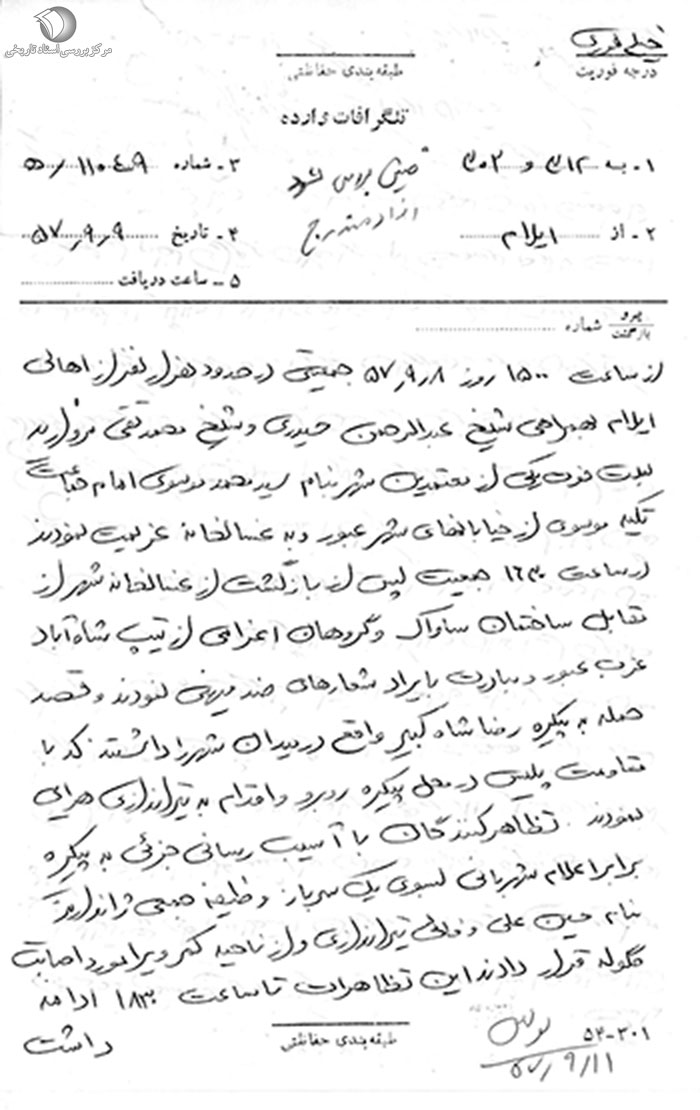 مرکز بررسی اسناد تاریخی
خیلی فوری
درجه فوریت
طبقه‌بندی حفاظتی
تلگرافات وارده
۱- به ۳۱۲ و ۳۰۲
۳- شماره ۱۱۰۴۹/ه‍
۲- از ایلام
۴- تاریخ ۵۷/۹/۹
۵- ساعت دریافت
پیرو
بازگشت
شماره
از ساعت ۱۵۰۰ روز ۵۷/۹/۸ جمعیتی در حدود هزار نفر از اهالی
ایلام بهمراهی شیخ عبدالرحمن حیدری و شیخ محمدتقی
بعلت فوت یکی از معتمدین شهر بنام سید محمد موسوی امام جماعت
تکیه موسوی از خیابانهای شهر عبور و به غسالخانه عزیمت نمودند
از ساعت ۱۶۳۰ جمعیت پس از بازگشت از غسالخانه شهر از
مقابل ساختمان ساواک و گروهان اعزامی از تیپ شاه‌آباد
غرب عبور و مبادرت بایراد شعارهای ضد میهنی نمودند و قصد
حمله به پیکره رضا شاه کبیر واقع در میدان شهر را داشتند که با
مقاومت پلیس در محل پیکره روبرو و اقدام به تیراندازی هوایی
نمودند. تظاهرکنندگان با آسیب رسانی جزئی به پیکره
برابر اعلام شهربانی بسوی یک سرباز وظیفه جمعی ژاندارمری
بنام حسن علی وفائی تیراندازی و از ناحیه کمر ویرا مورد اصابت
گلوله قرار دادند این تظاهرات تا ساعت ۱۸۳۰ ادامه
داشت
طبقه‌بندی حفاظتی
۵۲-۳۰۱
۵۷/۹/۱۱